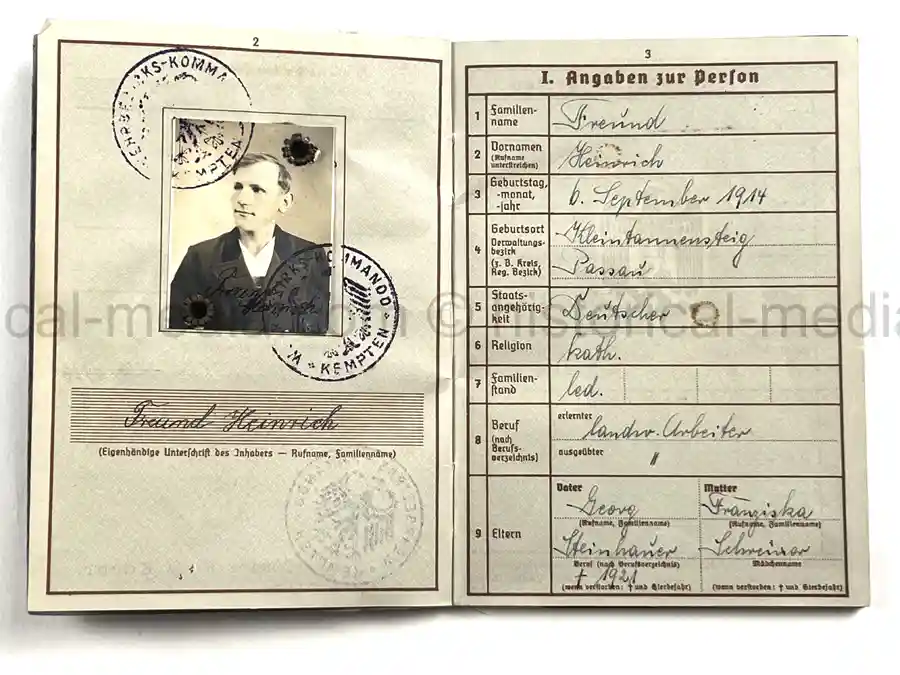 2
WEHRBEZIRKS-KOMMANDO
KEMPTEN
Freund
Heinrich
KOMMANDO
W.
KEMPTEN
Freund Heinrich
(Eigenhändige Unterschrift des Inhabers — Rufname, Familienname)
3
I. Angaben zur Person
1 Familien-
name
Freund
2 Vornamen
(Rufname
unterstreichen)
Heinrich
3 Geburtstag,
-monat,
-jahr
6. September 1914
4 Geburtsort
Verwaltungs-
bezirk
(z. B. Kreis,
Reg. Bezirk)
Kleintannensteig
Passau
5 Staats-
angehörig-
keit
Deutscher
6 Religion
kath.
7 Familien-
stand
led.
8 Beruf
(nach
Berufs-
verzeichnis)
erlernter
landw. Arbeiter
ausgeübter
"
9 Eltern
Vater Mutter
Georg Franziska
(Rufname, Familienname) (Rufname, Familienname)
Steinhauer
Beruf (nach Berufsverzeichnis) Mädchenname
† 1921
(wenn verstorben: † und Sterbejahr) (wenn verstorben: † und Sterbejahr)
cal-media.com © historical-media